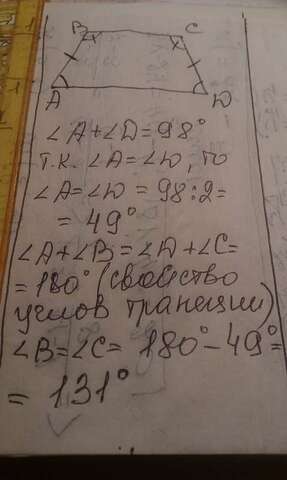 B C
A D
∠A+∠D=98°
т.к. ∠A=∠D, то
∠A=∠D=98:2=
=49°
∠A+∠B=∠D+∠C=
=180° (свойство
углов трапеции)
∠B=∠C= 180°-49°=
=131°